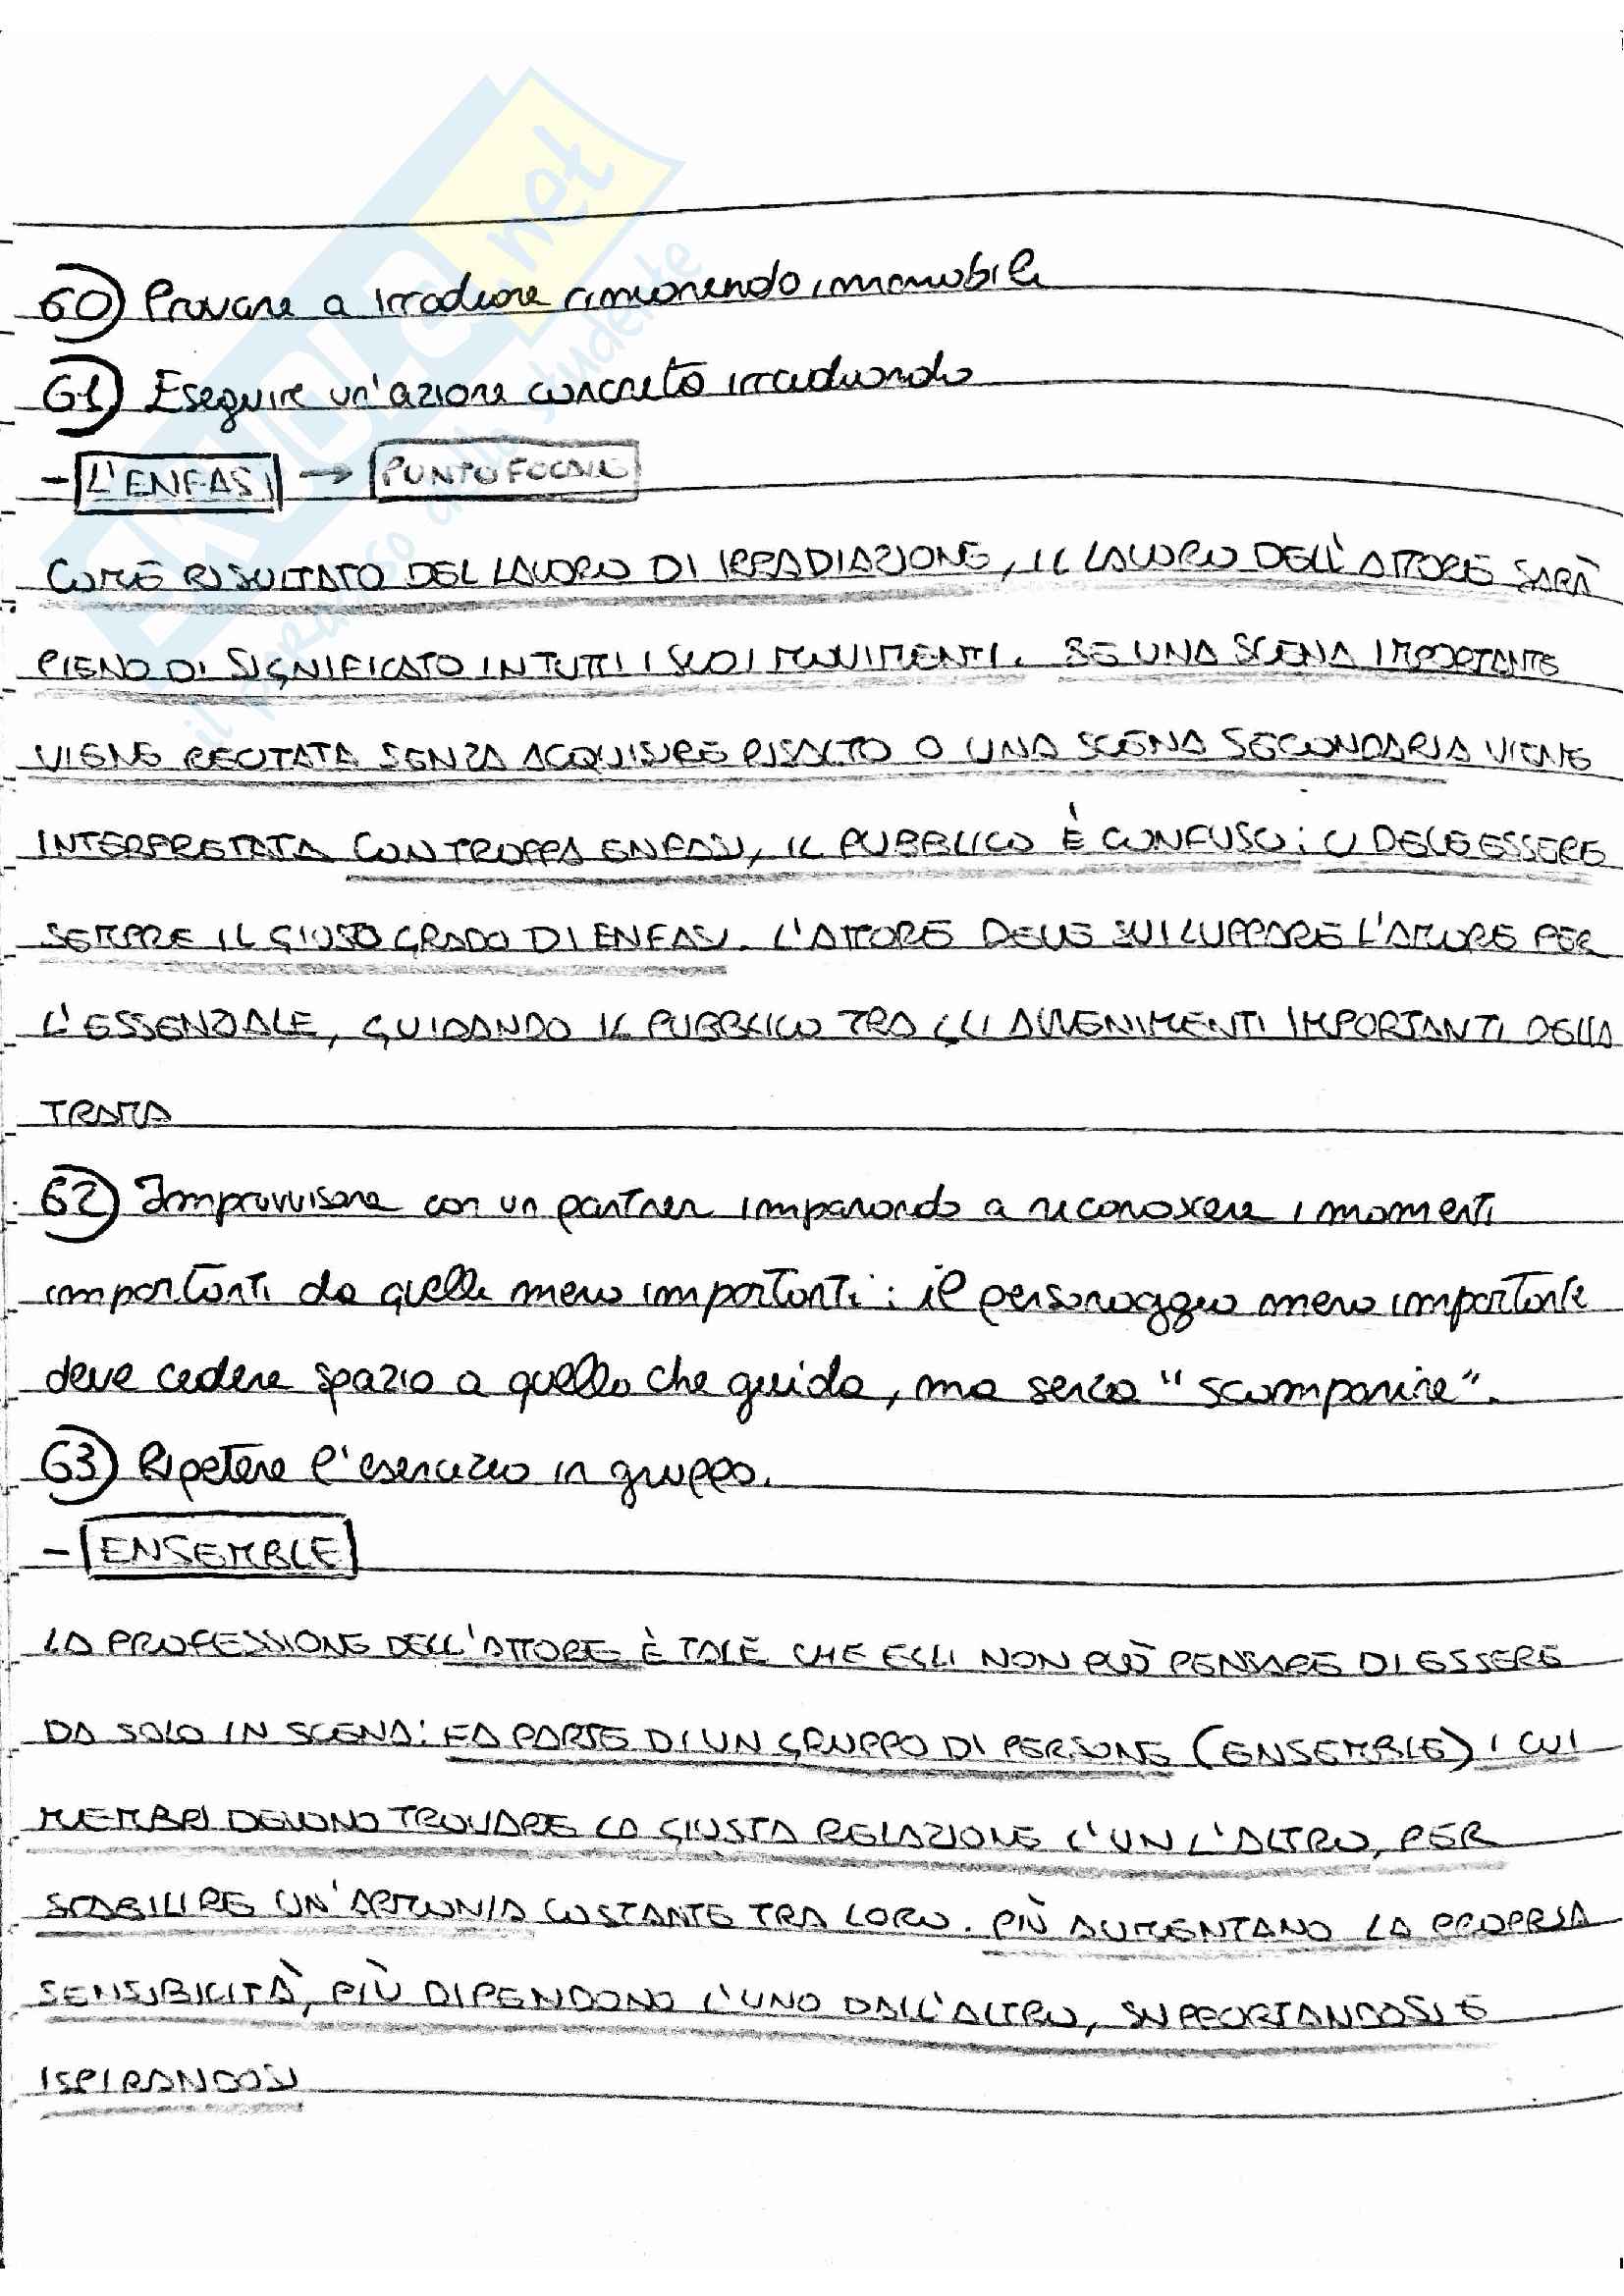 60) Provare a irradiare rimanendo immobili
61) Eseguire un'azione concreta irradiando
- L'ENFASI → PUNTO FOCALE
COME RISULTATO DEL LAVORO DI IRRADIAZIONE, IL LAVORO DELL'ATTORE SARÀ
PIENO DI SIGNIFICATO IN TUTTI I SUOI MOVIMENTI. SE UNA SCENA IMPORTANTE
VIENE RECITATA SENZA ACQUISIRE RISALTO O UNA SCENA SECONDARIA VIENE
INTERPRETATA CON TROPPA ENFASI, IL PUBBLICO È CONFUSO: CI DEVE ESSERE
SEMPRE IL GIUSTO GRADO DI ENFASI. L'ATTORE DEVE SVILUPPARE L'AMORE PER
L'ESSENZIALE, GUIDANDO IL PUBBLICO TRA GLI AVVENIMENTI IMPORTANTI DELLA
TRAMA
62) Improvvisare con un partner imparando a riconoscere i momenti
importanti da quelli meno importanti: il personaggio meno importante
deve cedere spazio a quello che guida, ma senza "scomparire".
63) Ripetere l'esercizio in gruppo.
- ENSEMBLE
LA PROFESSIONE DELL'ATTORE È TALE CHE EGLI NON PUÒ PENSARE DI ESSERE
DA SOLO IN SCENA: FA PARTE DI UN GRUPPO DI PERSONE (ENSEMBLE) I CUI
MEMBRI DEVONO TROVARE LA GIUSTA RELAZIONE L'UN L'ALTRO, PER
STABILIRE UN'ARMONIA COSTANTE TRA LORO. PIÙ AUMENTANO LA PROPRIA
SENSIBILITÀ, PIÙ DIPENDONO L'UNO DALL'ALTRO, SUPPORTANDOSI E
ISPIRANDOSI